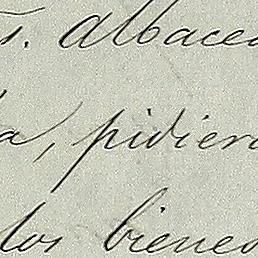 s. albacea
a, pidiero
los bienes